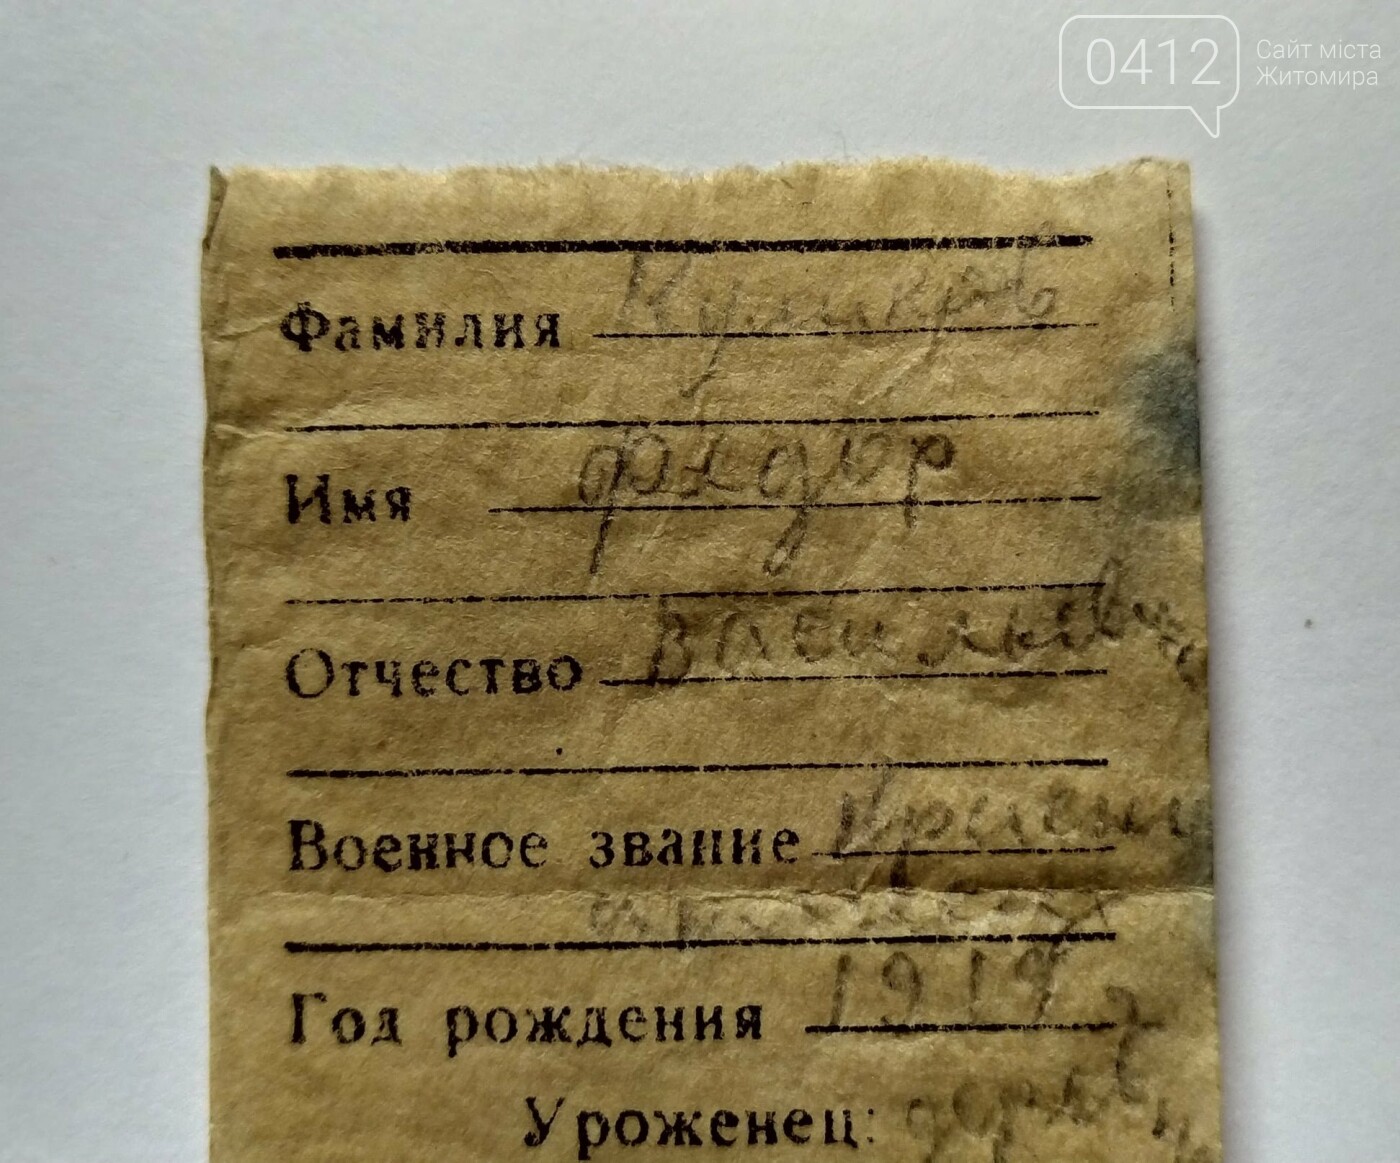 0412 Сайт міста
Житомира
Фамилия
Имя Фидор
Отчество Васильевич
Военное звание Красно
Год рождения 1919
Уроженец: